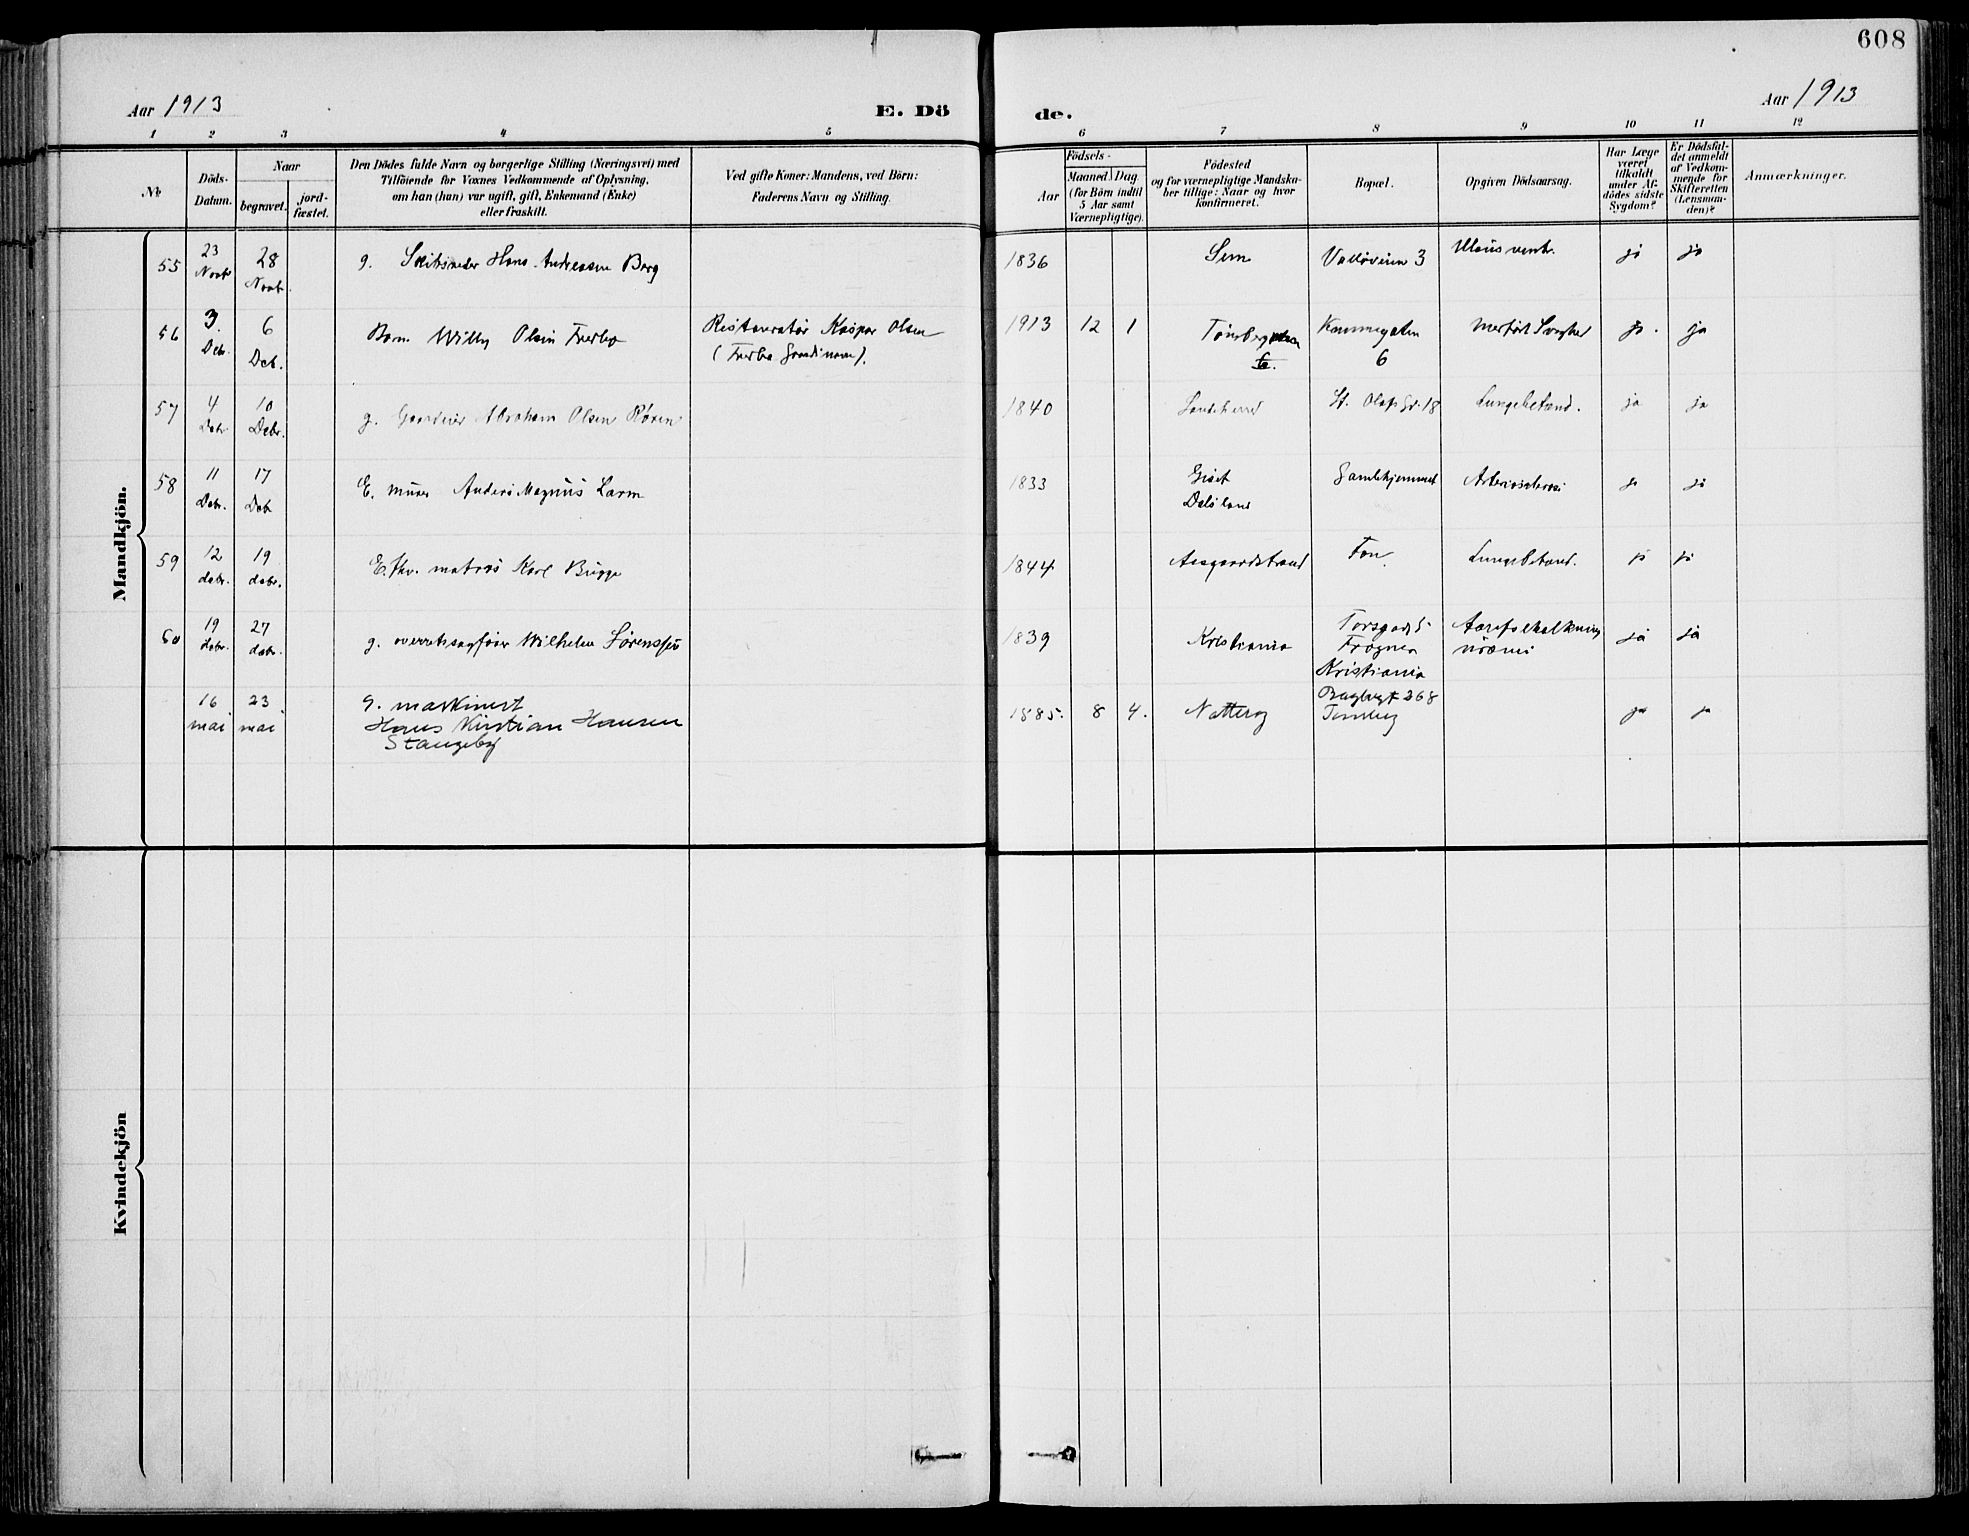 608
Aar 1913
E. Dö
de.
Aar 1913
1 2 3 4 5 6 7 8 9 10 11 12
№
Döds-
Datum.
Naar
begravet.
jord-
fæstet.
Den Dödes fulde Navn og borgerlige Stilling (Næringsvei) med
Tilföiende for Voxnes Vedkommende af Oplysning,
om han (hun) var ugift, gift, Enkemand (Enke)
eller fraskilt.
Ved gifte Koner: Mandens, ved Börn:
Faderens Navn og Stilling.
Födsels-
Aar
Maaned. Dag
(for Börn indtil
5 Aar samt
Værnepligtige).
Födested
og for værnepligtige Mandska-
ber tillige: Naar og hvor
konfirmeret.
Bopæl.
Opgiven Dödsaarsag.
Har Læge
været
tilkaldt
under Af-
dödes sidste
Sygdom?
Er Dödsfal-
det anmeldt
af Vedkom-
mende for
Skifteretten
(Lensman-
den)?
Anmærkninger.
Mandkjön.
55 23 Novbr 28 Novbr. g. Hans Andreassen Berg 1836 Sem Valløveien 3 Ulcus ventr. ja ja
56 3. Debr. 6 Deb. Barn Willy Olsen Restauratør Kaspar Olsen 1913 12 1 Tønsberg 6. ja. ja
57 4 Debr 10 Debr. g. Abraham Olsen Røren 1840 Sandeherred St. Olafs Gd. 18 Lungebetænd. ja ja
58 11 Debr. 17 Debr E. murer Anders Magnus Larm 1833 Dalsland Gamlehjemmet Arteriosclerosi ja ja
59 12 debr. 19 debr. E. fhv. matros Karl Bugge 1844 Aasgaardstrand Fon. Lungebetænd. ja ja
60 19 debr. 27 debr. g. overretssagfører Wilhelm Sørenssen 1839 Kristiania
Frogner
Kristiania
Aareforkalkning
uræmi
ja ja
16 mai 23 mai g. maskinist
Hans Kristian Hansen
Stangeby
1885. 8 4. Nøtterøy 268
Tønsberg
ja ja
Kvindekjön